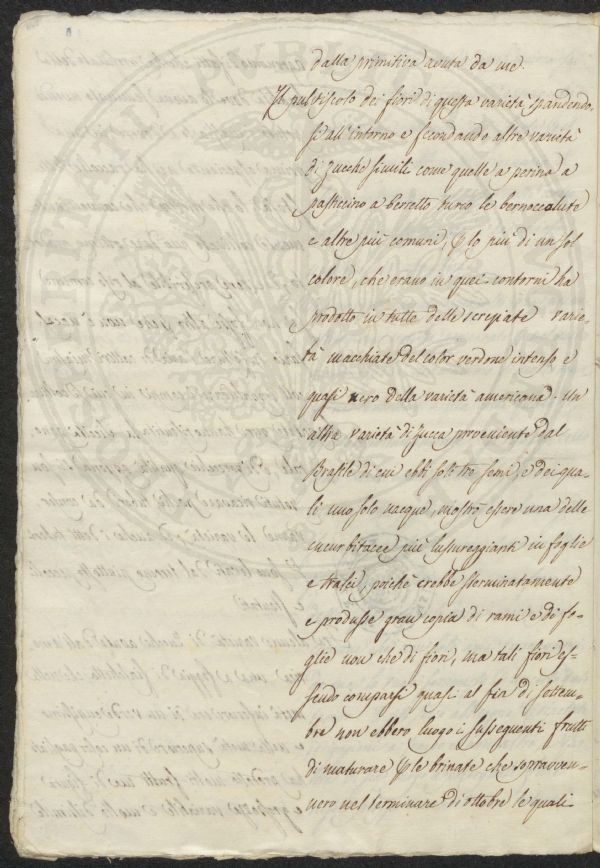 dalla primitiva avuta da me.
Il pulviscolo dei fiori di questa varietà spandendo-
si all'intorno e fecondando altre varietà
di zucche simili come quelle a perina a
pasticcino a berretto turco le bernoccolute
e altre più comuni, p lo più di un sol
colore, che erano in quei contorni ha
prodotto in tutte delle screpiate varie-
tà macchiate del color verdone intenso e
quasi nero della varietà americana. Un
altra varietà di zucca proveniente dal
Brasile di cui ebbi soli tre semi, e dei qua-
li uno solo nacque, mostrò essere una delle
cucurbitacee più lussureggianti in foglie
e tralci, poichè crebbe sterminatamente
e produsse gran copia di rami e di fo-
glie non che di fiori, ma tali fiori es-
sendo comparsi quasi al fin di settem-
bre non ebbero luogo i susseguenti frutti
di maturare p le brinate che sopravven-
nero nel terminare di ottobre le quali